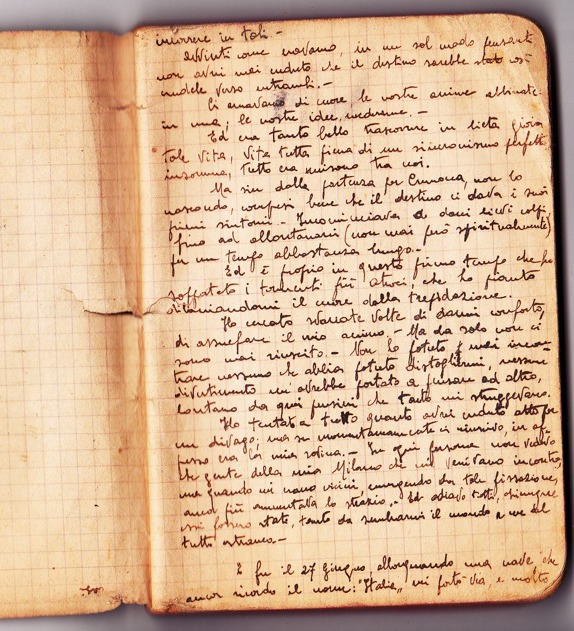 incorrere in tali.-
Avvinti come eravamo, in un sol modo pensanti
non avrei mai creduto che il destino sarebbe stato così
crudele verso entrambi.-
Ci amavamo di cuore, le nostre anime abbinate
in una; le nostre idee, medesime.-
Ed era tanto bello trascorrere in lieta gioia
tale vita, vita tutta piena di un sincronismo perfetto
insomma, tutto era unisono tra noi.
Ma sin dalla partenza per non lo
nascondo, compresi bene che il destino ci dava i suoi
primi sintomi.- Incominciava a darci lievi colpi,
fino ad allontanarci (non mai però spiritualmente)
per un tempo abbastanza lungo.-
Ed è proprio in questo primo tempo che ho
sopportato i tormenti più atroci, che ho pianto
dilaniandomi il cuore dalla trepidazione.
Ho cercato svariate volte di darmi conforto,
di assuefare il mio animo.- Ma da solo non ci
sono mai riuscito.- Non ho potuto mai incon-
trare nessuno che abbia potuto distogliermi, nessun
divertimento mi avrebbe portato a pensare ad altro,
lontano da quei pensieri che tanto mi struggevano.
Ho tentato tutto quanto avrei creduto atto per
un divago, ma se momentaneamente ci riuscivo, in ap-
presso era la mia rovina.- In ogni persona non vedevo
che gente della mia Milano che mi venivano incontro,
ma quando mi erano vicini, emergendo da tale fissazione,
ancor più aumentava lo strazio.- Ed odiavo tutti, chiunque
essi fossero stati, tanto da sembrarmi il mondo a me del
tutto estraneo.-
E fu il 27 Giugno, allorquando una nave che
ancor ricordo il nome: "Italia", mi portò via, e molto